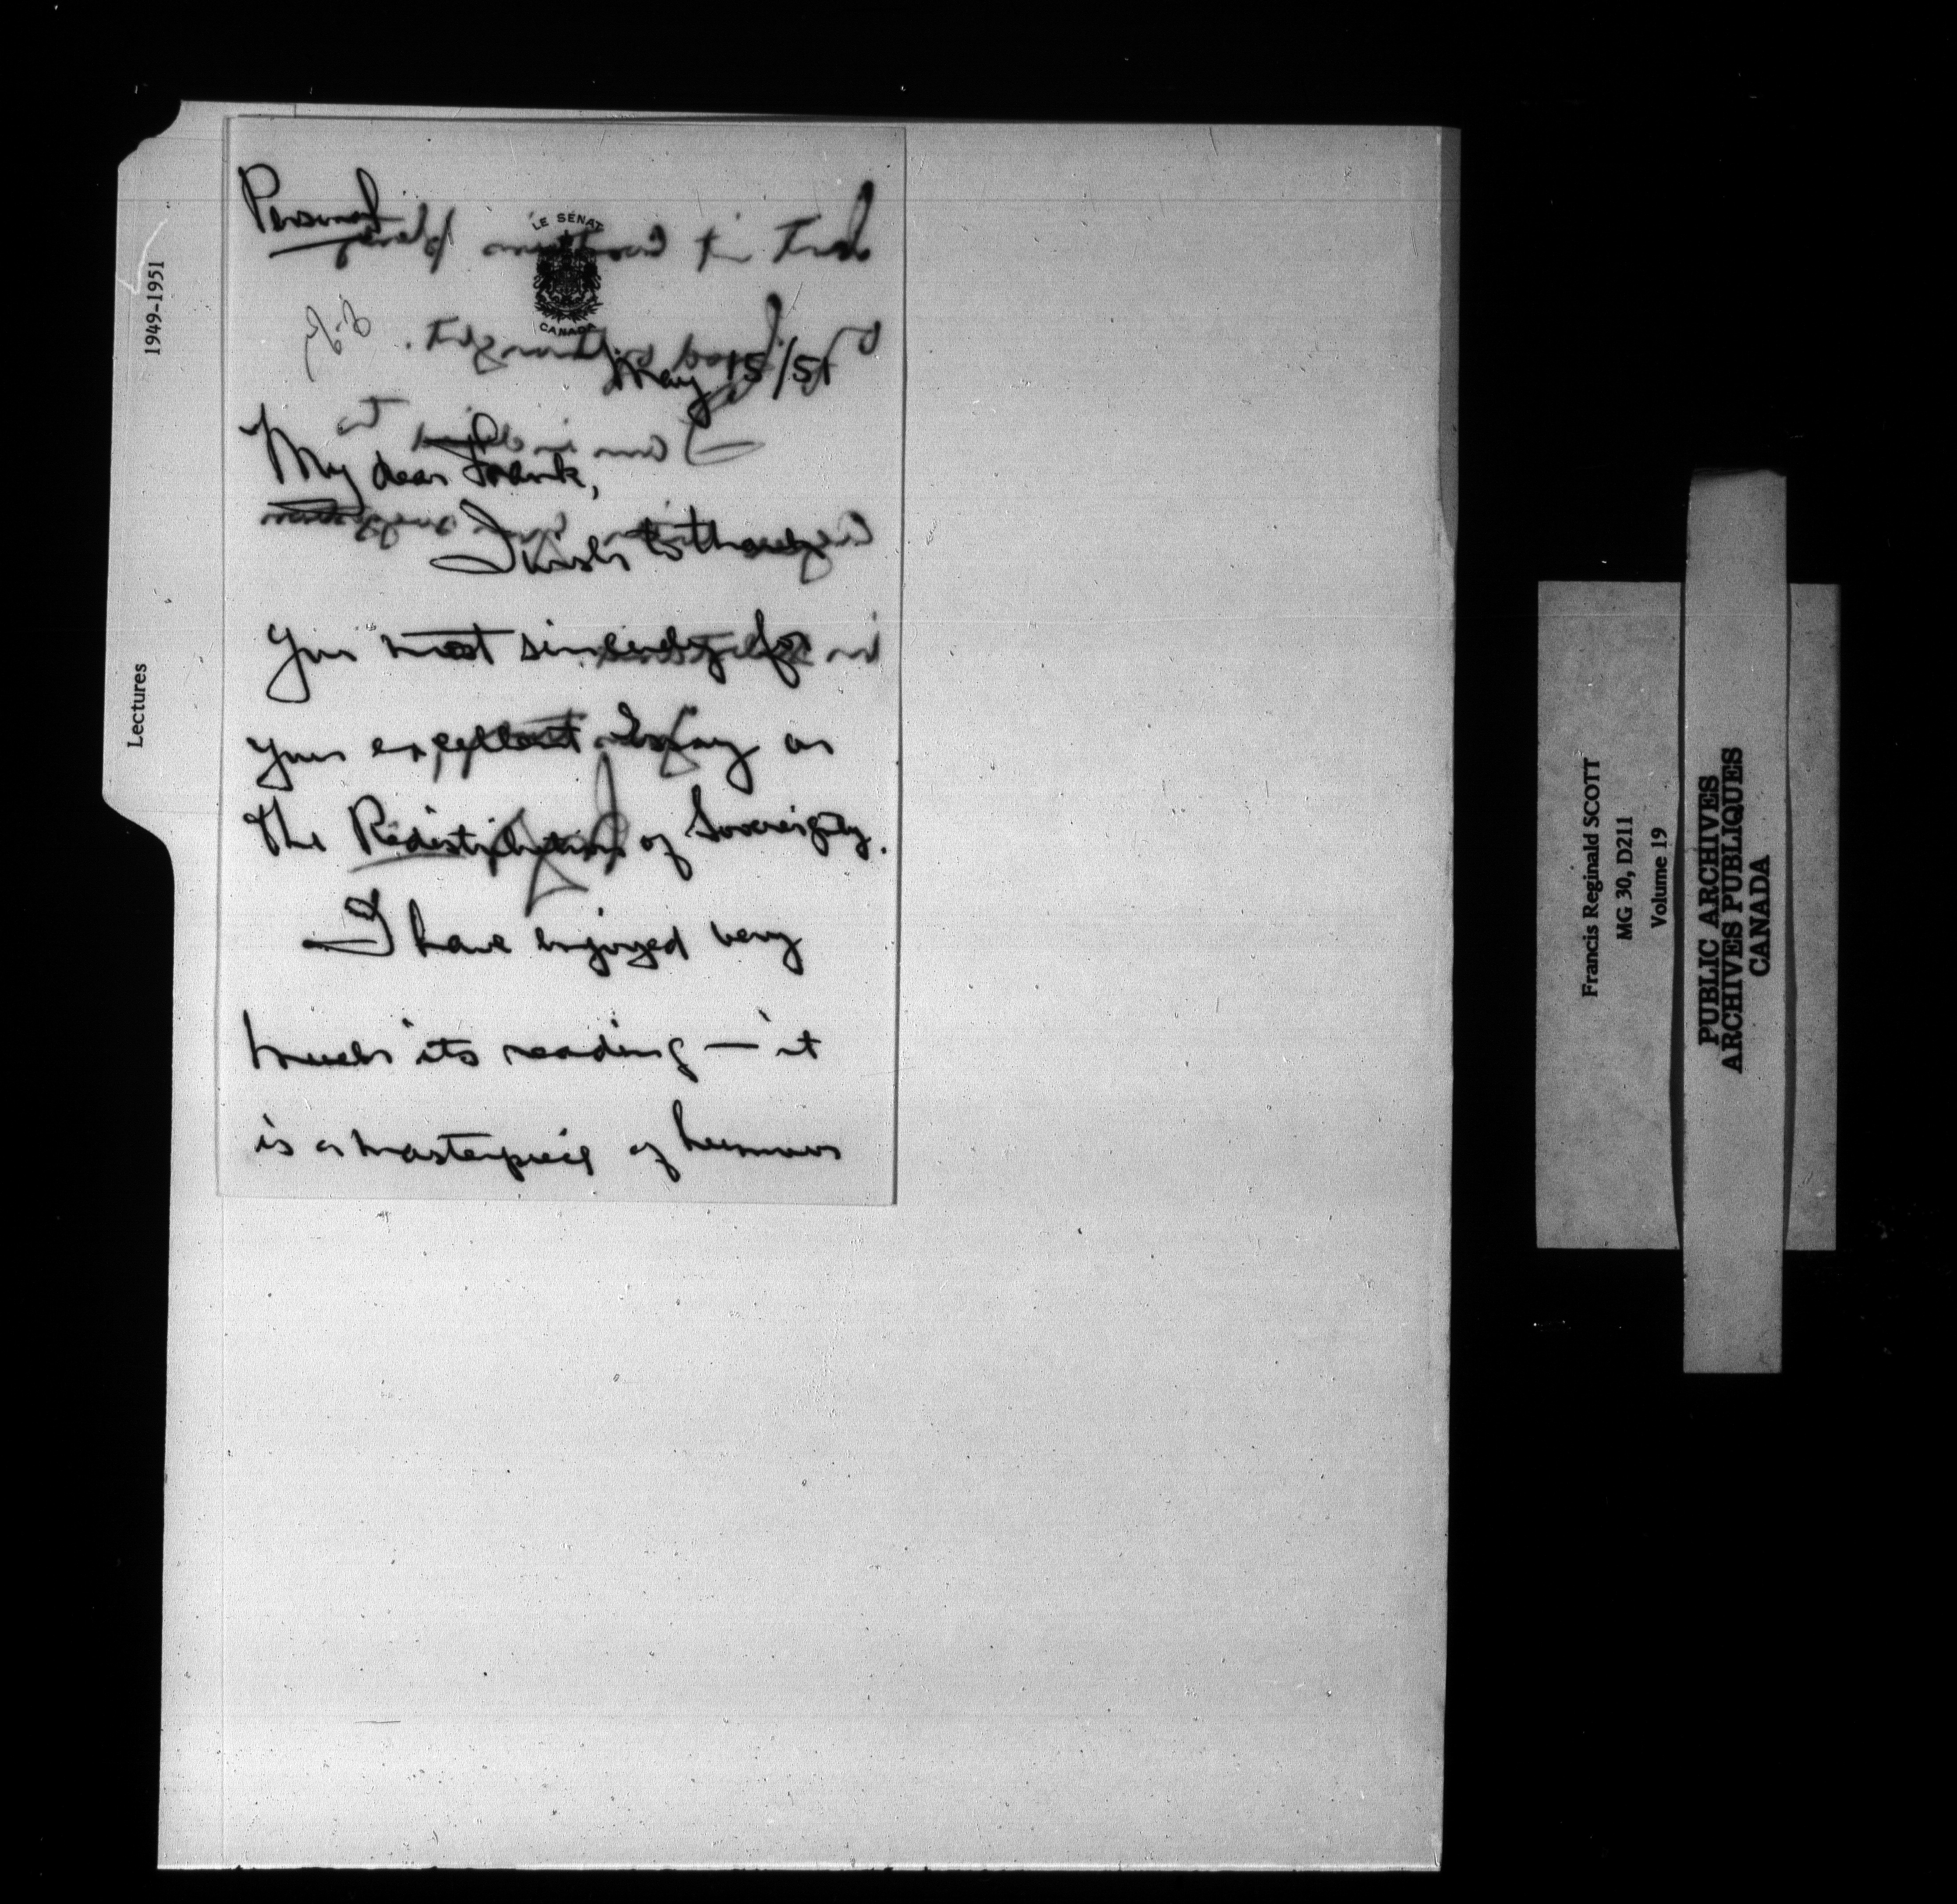 Personal
LE SÉNAT
CANADA
May 15/51
My dear Frank,
I wish to thank
you most sincerely for
your excellent Essay on
The Redistribution of Sovereignty.
I have enjoyed very
much its reading — it
is a masterpiece of humour
1949-1951
Lectures
Francis Reginald SCOTT
MG 30, D211
Volume 19
PUBLIC ARCHIVES
ARCHIVES PUBLIQUES
CANADA